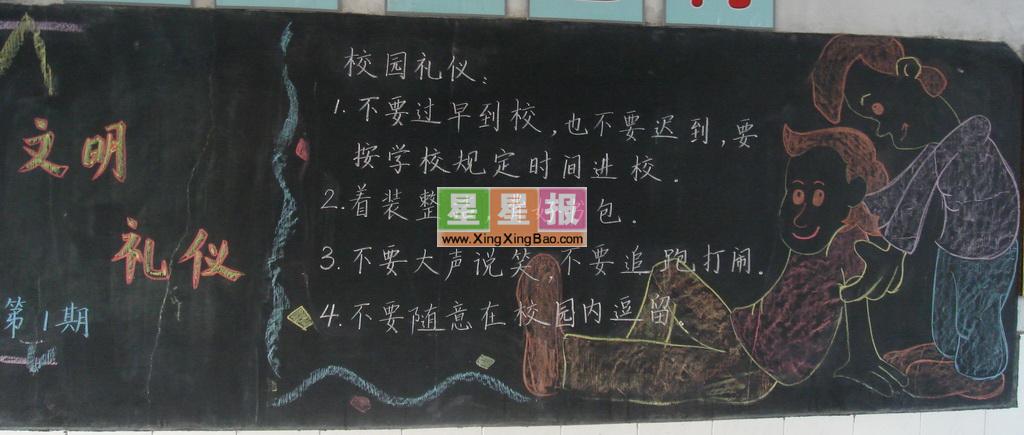 文明
礼仪
第1期
校园礼仪:
1.不要过早到校,也不要迟到,要
按学校规定时间进校.
2.着装整
包.
3.不要大声说笑,不要追跑打闹.
4.不要随意在校园内逗留.
星星报
www.XingXingBao.com